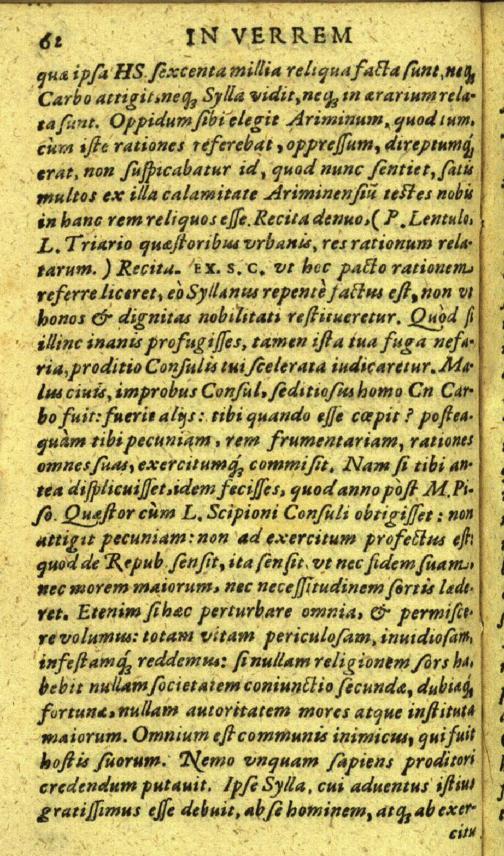 62 IN VERREM
quæ ipsa HS. sexcenta millia reliqua facta sunt, neq;
Carbo attigit, neq; Sylla vidit, neq; in ærarium rela-
ta sunt. Oppidum sibi elegit Ariminum, quod tum,
cùm iste rationes referebat, oppressum, direptumq;
erat, non suspicabatur id, quod nunc sentiet, satis
multos ex illa calamitate Ariminensiũ testes nobis
in hanc rem reliquos esse. Recita denuo, ( P. Lentulo,
L. Triario quæstoribus vrbanis, res rationum rela-
tarum. ) Recita. EX. S. C. vt hoc pacto rationem
referre liceret, eò Syllanus repentè factus est, non vt
honos & dignitas nobilitati restitueretur. Quòd si
illinc inanis profugisses, tamen ista tua fuga nefa-
ria, proditio Consulis tui scelerata iudicaretur. Ma-
lus ciuis, improbus Consul, seditiosus homo Cn Car-
bo fuit: fuerit alijs: tibi quando esse cœpit? postea-
quàm tibi pecuniam, rem frumentariam, rationes
omnes suas, exercitumq; commisit. Nam si tibi an-
tea displicuisset, idem fecisses, quod anno pòst M. Pi-
so. Quæstor cùm L. Scipioni Consuli obtigisset: non
attigit pecuniam: non ad exercitum profectus est:
quod de Repub. sensit, ita sensit, vt nec fidem suam,
nec morem maiorum, nec necessitudinem sortis læde-
ret. Etenim si hæc perturbare omnia, & permisce-
re volumus: totam vitam periculosam, inuidiosam,
infestamq; reddemus: si nullam religionem sors ha-
bebit nullam societatem coniunctio secundæ, dubiæq;
fortunæ, nullam autoritatem mores atque instituta
maiorum. Omnium est communis inimicus, qui fuit
hostis suorum. Nemo vnquam sapiens proditori
credendum putauit. Ipse Sylla, cui aduentus istius
gratissimus esse debuit, ab se hominem, atq; ab exer-
citu